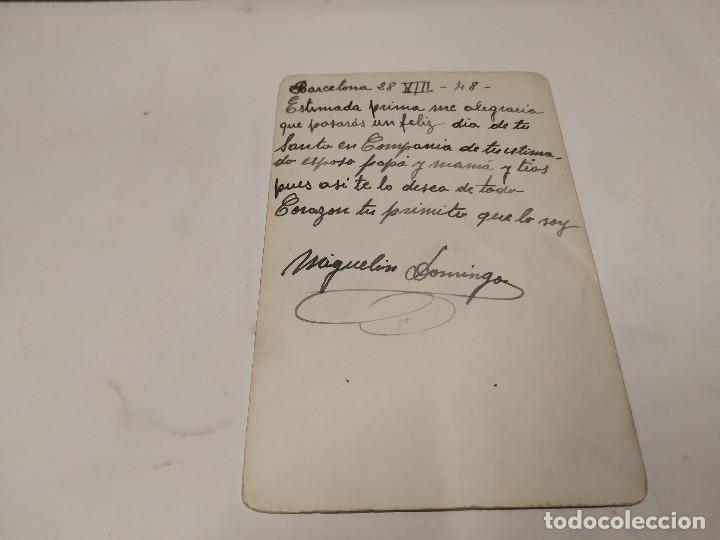 Barcelona 28 VIII - 48 -
Estimada prima me alegraria
que pasarás un feliz dia de tu
Santo en Compania de tu estima-
do esposo papá y mamá y tios
pues asi te lo desea de todo
Corazon tu primito que lo soy
Miguelin Domingo
todocoleccion